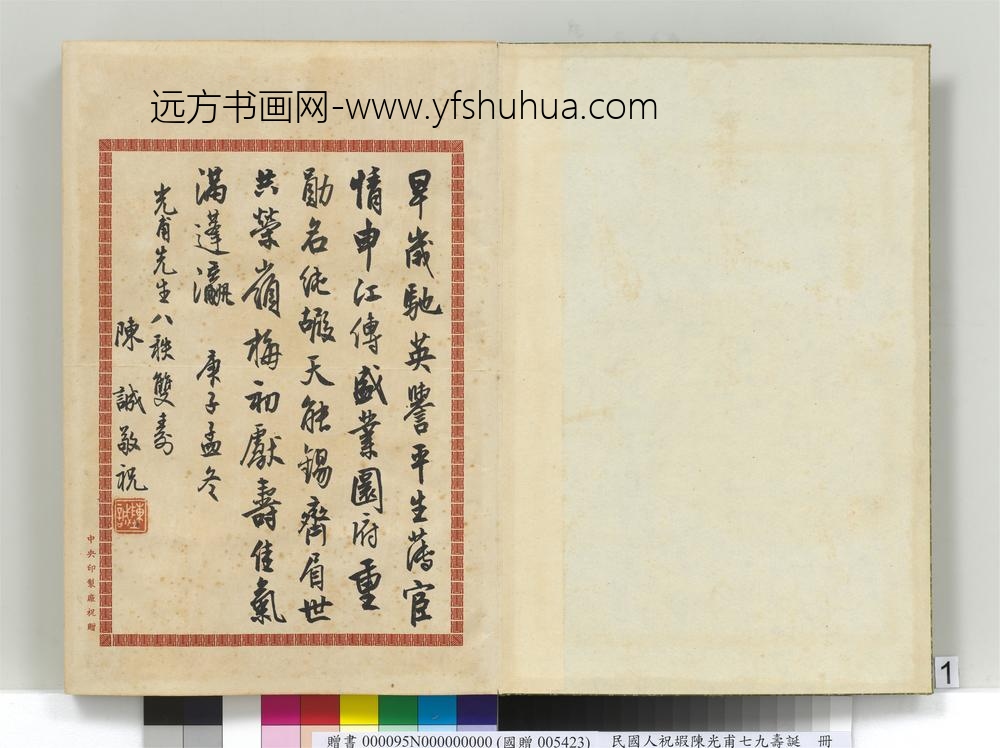 远方书画网-www.yfshuhua.com
早歲馳英譽平生薄宦
情申江傳盛業園府重
勛名純嘏天能錫齊眉世
共榮嶺梅初獻壽佳氣
滿蓬瀛　庚子孟冬
光甫先生八秩雙壽
陳誠敬祝
陳誠
中央印製廠祝贈
1
贈書 000095N000000000 (國贈 005423)　民國人祝嘏陳光甫七九壽誕　冊